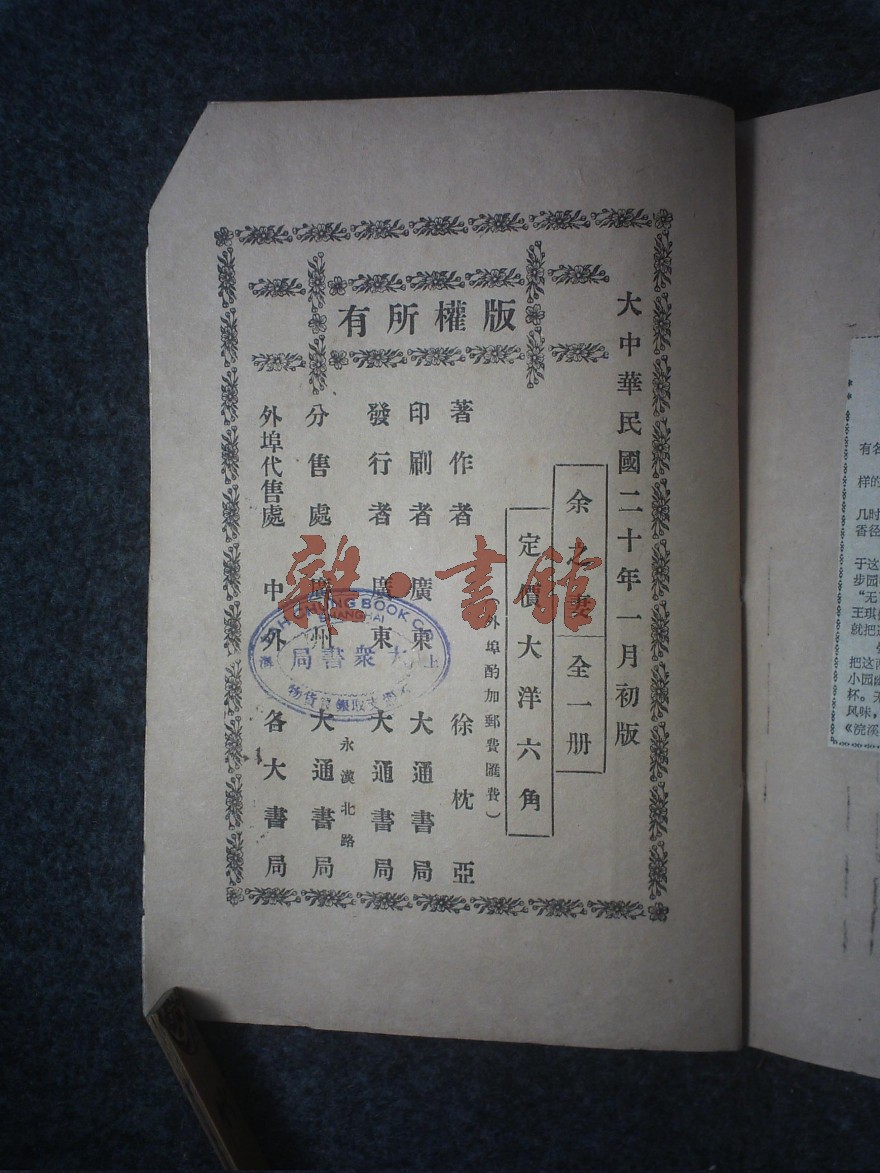 大中華民國二十年一月初版
余之妻 全一册
定價大洋六角
(外埠酌加郵費匯費)
版權所有
著作者 徐枕亞
印刷者 廣東大通書局
發行者 廣東大通書局
永漢北路
分售處 廣州大通書局
外埠代售處 中外各大書局
CHUNG BOOK CO
SHANGHAI
大衆書局
雜·書館
有名
样的
几时
香径
于这
步园
“无
王琪
就把
把这两
小园幽
杯。无
风味，
《浣溪